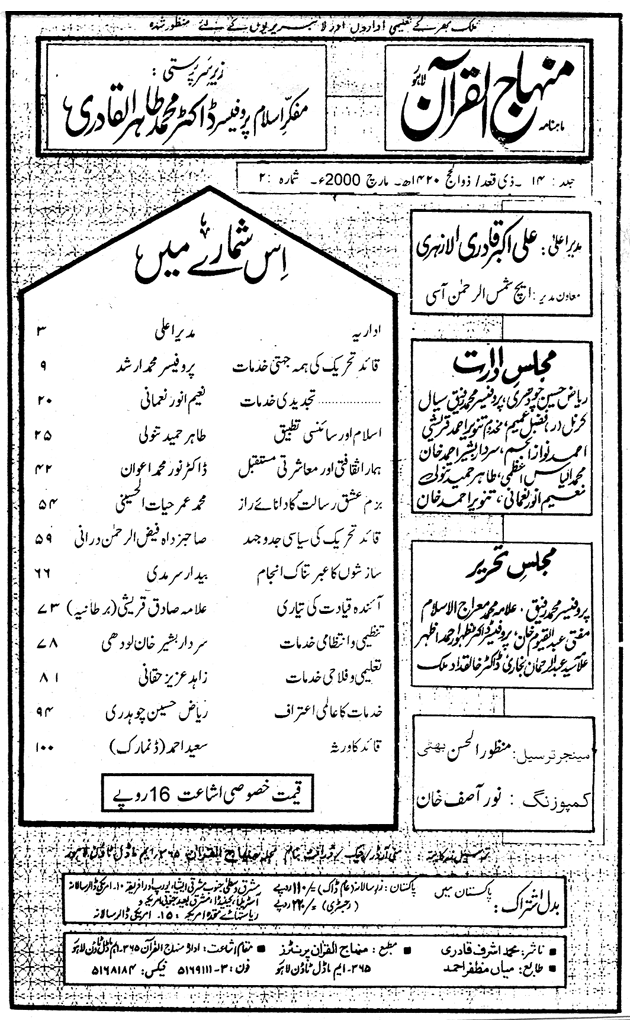 ملک بھر کے تعلیمی اداروں اور لائبریریوں کے لئے منظور شدہ
ماہنامہ منہاج القرآن لاہور
زیر سرپرستی:
مفکر اسلام پروفیسر ڈاکٹر محمد طاہر القادری
جلد: ۱۴ ۔ ذی قعد / ذوالحج ۱۴۲۰ھ۔ مارچ 2000ء۔ شمارہ: ۲
مدیر اعلیٰ: علی اکبر قادری الازہری
معاون مدیر: ایچ شمس الرحمن آسی
مجلس ادارت
ریاض حسین چوہدری، پروفیسر محمد رفیق سیال
کرنل (ر) فضل عمیم، مخدوم تنویر احمد قریشی
احمد نواز انجم، سردار بشیر احمد خان
محمد الیاس اعظمی، طاہر حمید تنولی
نعیم انور نعمانی، تنویر احمد خان
مجلس تحریر
پروفیسر محمد رفیق، علامہ محمد معراج الاسلام
مفتی عبدالقیوم خان، پروفیسر ڈاکٹر ظہور احمد اظہر
علامہ سید عبدالرحمان بخاری ڈاکٹر خالقداد ملک
مینجر ترسیل: منظور الحسن بھٹی
کمپوزنگ: نور آصف خان
اس شمارے میں
اداریہ مدیر اعلی ۳
قائد تحریک کی ہمہ جہتی خدمات پروفیسر محمد ارشد ۹
تجدیدی خدمات نعیم انور نعمانی ۲۰
اسلام اور سائنسی تطبیق طاہر حمید تنولی ۲۵
ہمارا ثقافتی اور معاشرتی مستقبل ڈاکٹر نور محمد اعوان ۴۲
بزم عشق رسالت کا دانائے راز محمد عمر حیات الحسینی ۵۴
قائد تحریک کی سیاسی جدوجہد صاحبزادہ فیض الرحمن درانی ۵۹
سازشوں کا عبرتناک انجام بیدار سرمدی ۶۶
آئندہ قیادت کی تیاری علامہ صادق قریشی (برطانیہ) ۷۳
تنظیمی و انتظامی خدمات سردار بشیر خان لودھی ۷۸
تعلیمی و فلاحی خدمات زاہد عزیز حقانی ۸۱
خدمات کا عالمی اعتراف ریاض حسین چوہدری ۹۴
قائد کا ورثہ سعید احمد (ڈنمارک) ۱۰۰
قیمت خصوصی اشاعت 16 روپے
ترسیل زر کا پتہ: منی آرڈر / چیک / ڈرافٹ بنام مجلہ منہاج القرآن ۳۶۵۔ ایم ماڈل ٹاؤن لاہور
بدل اشتراک: پاکستان میں
پاکستان: زر سالانہ (عام ڈاک) =/۱۱۰ روپے
(رجسٹری) =/۲۲۰ روپے
مشرق وسطیٰ جنوب مشرقی ایشیا، یورپ اور افریقہ ۱۰۔ امریکی ڈالر سالانہ
آسٹریلیا، کینیڈا، مشرق بعید جنوبی امریکہ و
ریاستہائے متحدہ امریکہ: ۱۵۔ امریکی ڈالر سالانہ
ناشر: محمد اشرف قادری
مطبع: منہاج القرآن پرنٹرز
مقام اشاعت: ادارہ منہاج القرآن ۳۶۵۔ ایم ماڈل ٹاؤن لاہور
طابع: میاں مظفر احمد
۳۶۵۔ ایم ماڈل ٹاؤن لاہور
فون: ۳-۵۱۶۹۱۱۱ فیکس: ۵۱۶۸۱۸۴